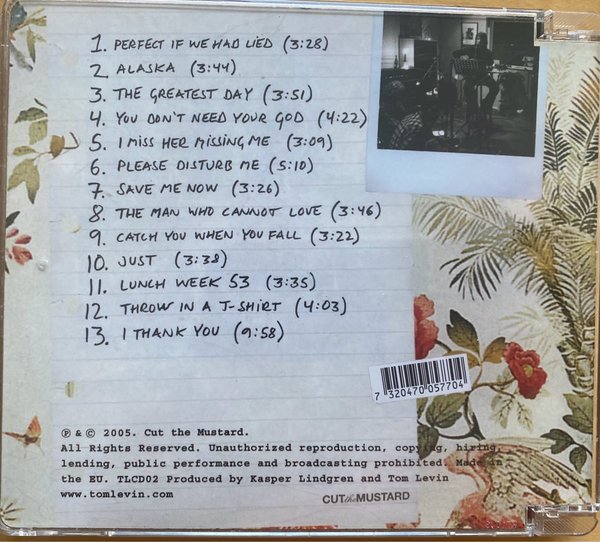 1. PERFECT IF WE HAD LIED (3:28)
2. ALASKA (3:44)
3. THE GREATEST DAY (3:51)
4. YOU DON'T NEED YOUR GOD (4:22)
5. I MISS HER MISSING ME (3:09)
6. PLEASE DISTURB ME (5:10)
7. SAVE ME NOW (3:26)
8. THE MAN WHO CANNOT LOVE (3:46)
9. CATCH YOU WHEN YOU FALL (3:22)
10. JUST (3:38)
11. LUNCH WEEK 53 (3:35)
12. THROW IN A T-SHIRT (4:03)
13. I THANK YOU (9:58)
7 320470 057704
℗ & © 2005. Cut the Mustard.
All Rights Reserved. Unauthorized reproduction, copying, hiring,
lending, public performance and broadcasting prohibited. Made in
the EU. TLCD02 Produced by Kasper Lindgren and Tom Levin
www.tomlevin.com
CUT the MUSTARD